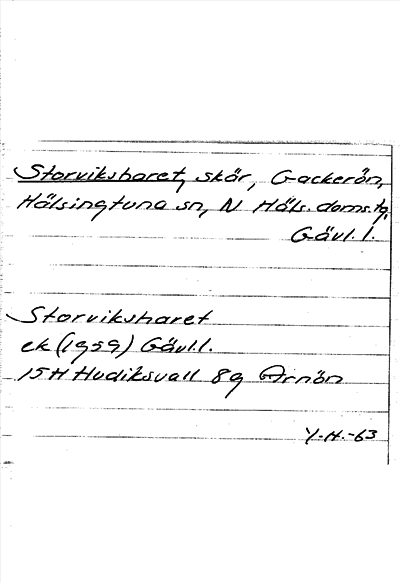 Storviksharet, skär, Gackerön,
Hälsingtuna sn, N Häls. doms.tg,
Gävl.l.
Storviksharet
ek (1959) Gävl.l.
15H Hudiksvall 8g Arnön
Y.H.-63